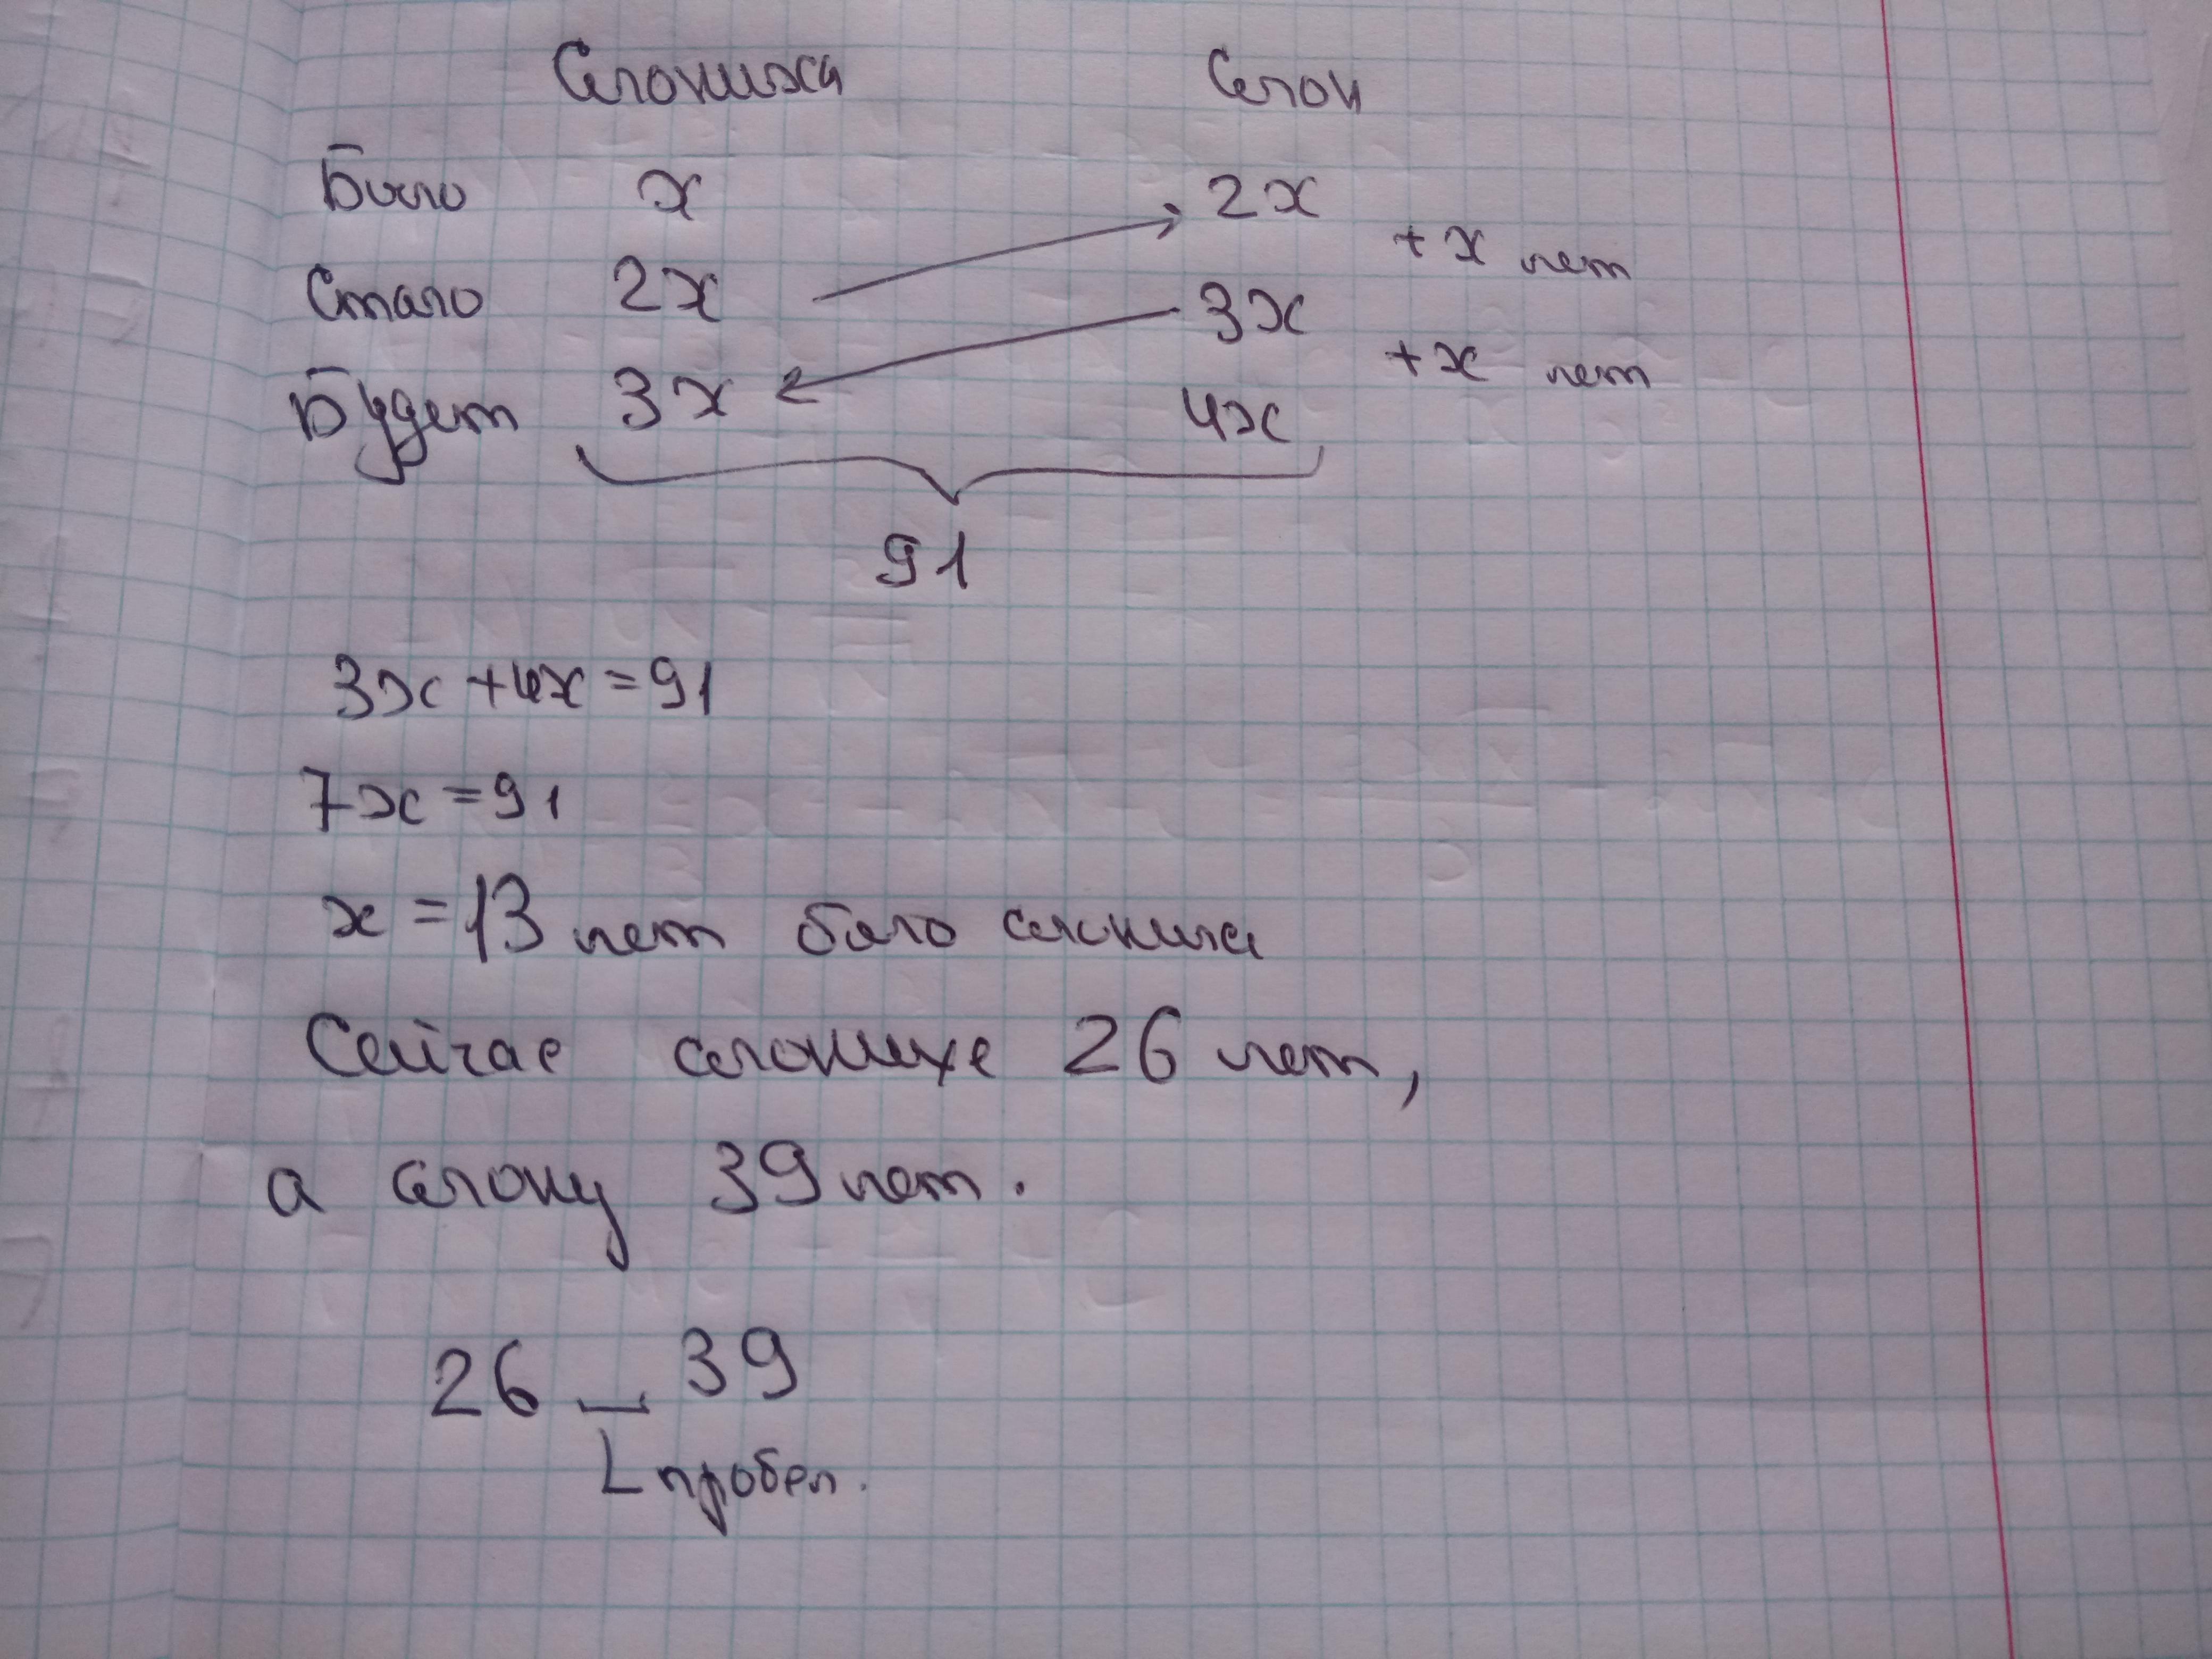 Слониха Слон
Было x 2x
+x лет
Стало 2x 3x
+x лет
Будет 3x 4x
91
3x+4x=91
7x=91
x=13 лет было слонихе
Сейчас слонихе 26 лет,
а слону 39 лет.
26 39
пробел.